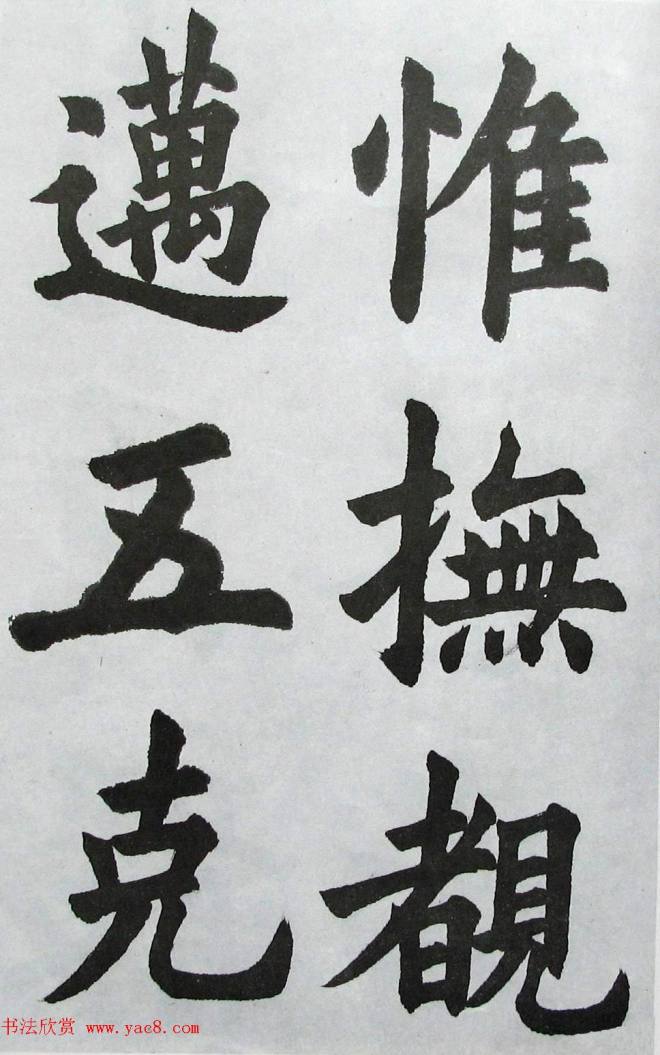 惟撫覩
邁五克
书法欣赏 www.yac8.com